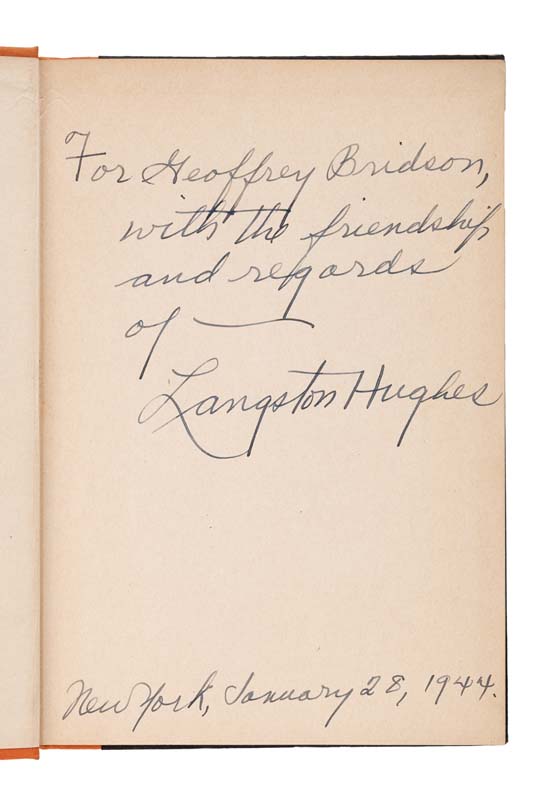 For Geoffrey Bridson,
with the friendship
and regards
of —
Langston Hughes
New York, January 28, 1944.